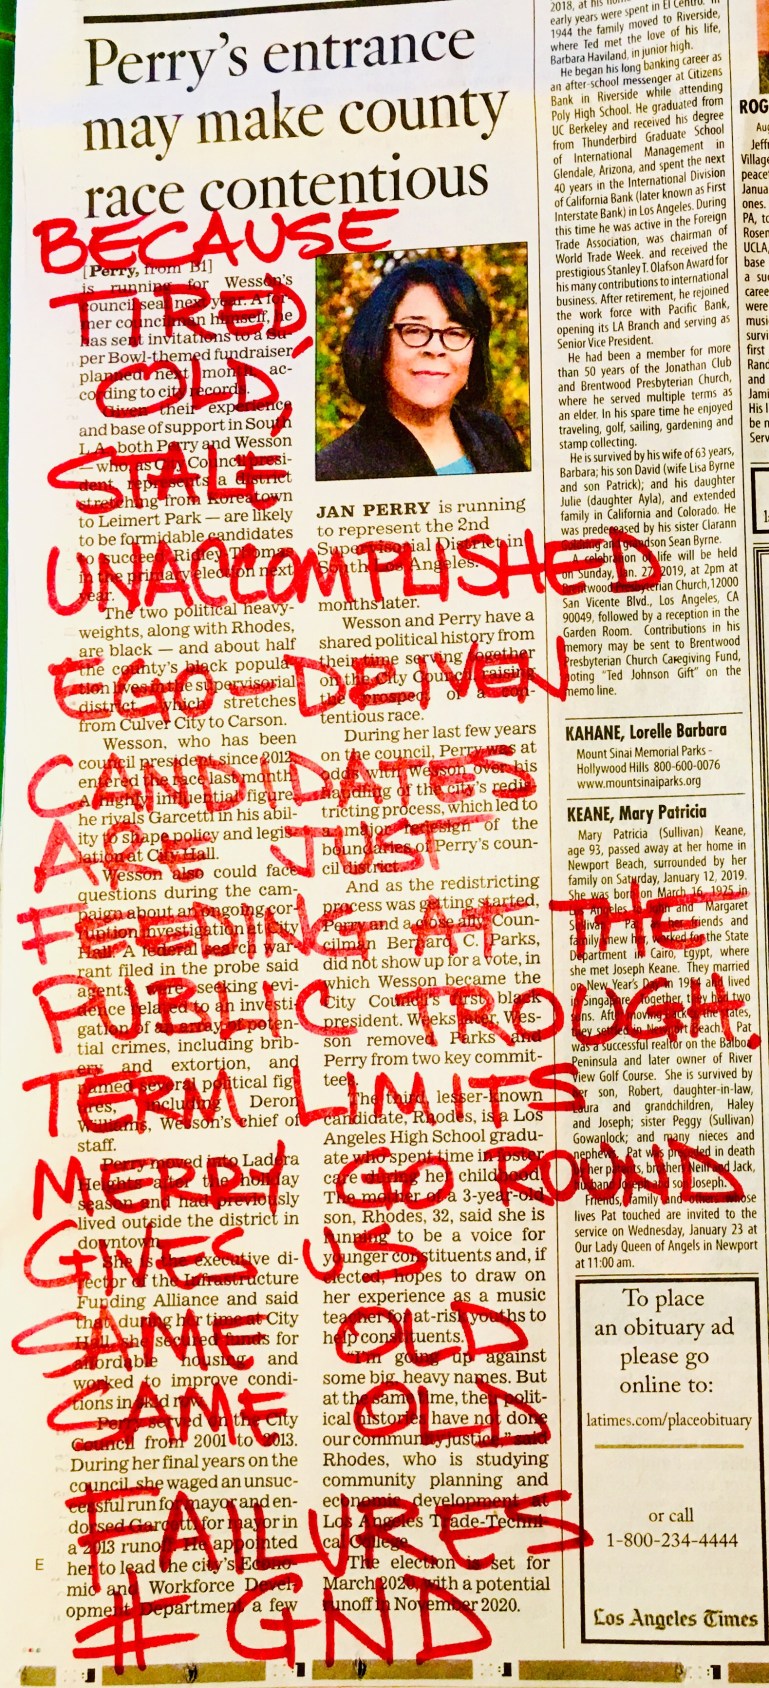 Perry's entrance
may make county
race contentious
BECAUSE
TIRED,
OLD,
STALE
UNACCOMPLISHED
EGO-DRIVEN
CANDIDATES
ARE JUST
FEEDING AT THE
PUBLIC TROUGH.
TERM LIMITS
MERRY GO ROUND
GIVES US
SAME OLD
SAME OLD
FAILURES
# GND
[Perry, from B1]
is running for Wesson's
council seat next year. A for-
mer councilman himself, he
has sent invitations to a Su-
per Bowl-themed fundraiser
planned next month, ac-
cording to city records.
Given their experience
and base of support in South
L.A., both Perry and Wesson
— who, as City Council presi-
dent, represents a district
stretching from Koreatown
to Leimert Park — are likely
to be formidable candidates
to succeed Ridley-Thomas
in the primary election next
year.
The two political heavy-
weights, along with Rhodes,
are black — and about half
the county's black popula-
tion lives in the supervisorial
district, which stretches
from Culver City to Carson.
Wesson, who has been
council president since 2012,
entered the race last month.
A highly influential figure,
he rivals Garcetti in his abil-
ity to shape policy and legis-
lation at City Hall.
Wesson also could face
questions during the cam-
paign about an ongoing cor-
ruption investigation at City
Hall. A federal search war-
rant filed in the probe said
agents were seeking evi-
dence related to an investi-
gation of an array of poten-
tial crimes, including brib-
ery and extortion, and
named several political fig-
ures, including Deron
Williams, Wesson's chief of
staff.
Perry moved into Ladera
Heights after the holiday
season and had previously
lived outside the district in
downtown.
She is the executive di-
rector of the Infrastructure
Funding Alliance and said
that during her time at City
Hall, she secured funds for
affordable housing and
worked to improve condi-
tions in skid row.
Perry served on the City
Council from 2001 to 2013.
During her final years on the
council, she waged an unsuc-
cessful run for mayor and en-
dorsed Garcetti for mayor in
a 2013 runoff. He appointed
her to lead the city's Econo-
mic and Workforce Devel-
opment Department a few
E
JAN PERRY is running
to represent the 2nd
Supervisorial District in
South Los Angeles.
months later.
Wesson and Perry have a
shared political history from
their time serving together
on the City Council, raising
the prospect of a con-
tentious race.
During her last few years
on the council, Perry was at
odds with Wesson over his
handling of the city's redis-
tricting process, which led to
a major redesign of the
boundaries of Perry's coun-
cil district.
And as the redistricting
process was getting started,
Perry and a close ally, Coun-
cilman Bernard C. Parks,
did not show up for a vote, in
which Wesson became the
City Council's first black
president. Weeks later, Wes-
son removed Parks and
Perry from two key commit-
tees.
The third, lesser-known
candidate, Rhodes, is a Los
Angeles High School gradu-
ate who spent time in foster
care during her childhood.
The mother of a 3-year-old
son, Rhodes, 32, said she is
running to be a voice for
younger constituents and, if
elected, hopes to draw on
her experience as a music
teacher for at-risk youths to
help constituents.
"I'm going up against
some big, heavy names. But
at the same time, their polit-
ical histories have not done
our community justice," said
Rhodes, who is studying
community planning and
economic development at
Los Angeles Trade-Techni-
cal College.
The election is set for
March 2020, with a potential
runoff in November 2020.
2018, at his
early years were spent in El Centro. In
1944 the family moved to Riverside,
where Ted met the love of his life,
Barbara Haviland, in junior high.
He began his long banking career as
an after-school messenger at Citizens
Bank in Riverside while attending
Poly High School. He graduated from
UC Berkeley and received his degree
from Thunderbird Graduate School
of International Management in
Glendale, Arizona, and spent the next
40 years in the International Division
of California Bank (later known as First
Interstate Bank) in Los Angeles. During
this time he was active in the Foreign
Trade Association, was chairman of
World Trade Week, and received the
prestigious Stanley T. Olafson Award for
his many contributions to international
business. After retirement, he rejoined
the work force with Pacific Bank,
opening its LA Branch and serving as
Senior Vice President.
He had been a member for more
than 50 years of the Jonathan Club
and Brentwood Presbyterian Church,
where he served multiple terms as
an elder. In his spare time he enjoyed
traveling, golf, sailing, gardening and
stamp collecting.
He is survived by his wife of 63 years,
Barbara; his son David (wife Lisa Byrne
and son Patrick); and his daughter
Julie (daughter Ayla), and extended
family in California and Colorado. He
was predeceased by his sister Clarann
and grandson Sean Byrne.
A celebration of life will be held
on Sunday, Jan. 27, 2019, at 2pm at
Brentwood Presbyterian Church, 12000
San Vicente Blvd., Los Angeles, CA
90049, followed by a reception in the
Garden Room. Contributions in his
memory may be sent to Brentwood
Presbyterian Church Caregiving Fund,
noting "Ted Johnson Gift" on the
memo line.
KAHANE, Lorelle Barbara
Mount Sinai Memorial Parks -
Hollywood Hills 800-600-0076
www.mountsinaiparks.org
KEANE, Mary Patricia
Mary Patricia (Sullivan) Keane,
age 93, passed away at her home in
Newport Beach, surrounded by her
family on Saturday, January 12, 2019.
She was born on March 16, 1925 in
Los Angeles to John and Margaret
Sullivan. Pat, as her friends and
family knew her, worked for the State
Department in Cairo, Egypt, where
she met Joseph Keane. They married
on New Year's Day in 1954 and lived
in Singapore. Together, they had two
sons. After moving back to the states,
they settled in Newport Beach. Pat
was a successful realtor on the Balboa
Peninsula and later owner of River
View Golf Course. She is survived by
her son, Robert, daughter-in-law,
Laura and grandchildren, Haley
and Joseph; sister Peggy (Sullivan)
Gowaplock; and many nieces and
nephews. Pat was preceded in death
by her parents, brothers Neill and Jack,
husband Joseph and son Joseph.
Friends, family and others whose
lives Pat touched are invited to the
service on Wednesday, January 23 at
Our Lady Queen of Angels in Newport
at 11:00 am.
To place
an obituary ad
please go
online to:
latimes.com/placeobituary
or call
1-800-234-4444
Los Angeles Times
ROG
Aug
Jeff
Village
peace
Janua
ones.
PA, to
Rosen
UCLA,
base
a su
caree
were
musi
survi
first
Rand
and
Jami
His l
be n
Serv